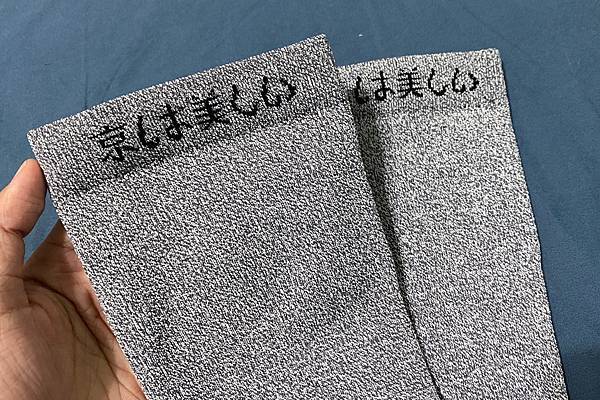 京は美しい
は美しい